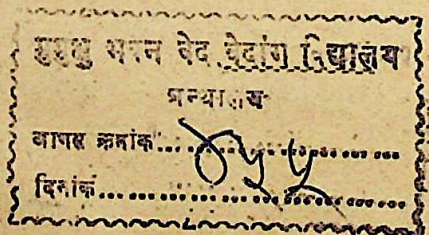 मुमुक्षु भवन वेद वेदांग विद्यालय
ग्रन्थालय
आगत क्रमांक......................
दिनांक......................